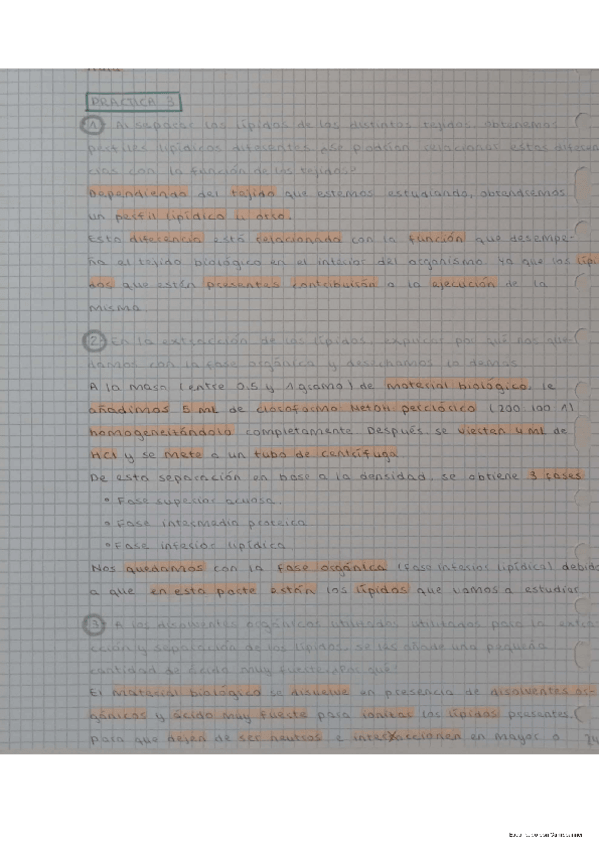 PRACTICA 3
1 Al separar los lípidos de los distintos tejidos, obtenemos
perfiles lipídicos diferentes ¿se podrían relacionar estas diferen-
cias con la función de los tejidos?
Dependiendo del tejido que estemos estudiando, obtendremos
un perfil lipídico u otro.
Esta diferencia está relacionada con la función que desempe-
ña el tejido biológico en el interior del organismo. Ya que los lípi-
dos que estén presentes contribuirán a la ejecución de la
misma.
2 En la extracción de los lípidos, explica por qué nos que-
damos con la fase orgánica y desechamos la demás.
A la masa (entre 0,5 y 1 gramo) de material biológico, le
añadimos 5 mL de cloroformo MetOH perclórico (200:100:1)
homogeneizándolo completamente. Después, se vierten 4 mL de
HCl y se mete a un tubo de centrífuga.
De esta separación en base a la densidad, se obtiene 3 fases
• Fase superior acuosa.
• Fase intermedia proteica
• Fase inferior lipídica
Nos quedamos con la fase orgánica (fase inferior lipídica) debido
a que en esta parte están los lípidos que vamos a estudiar
3 A los disolventes orgánicos utilizados utilizados para la extra-
cción y separación de los lípidos, se les añade una pequeña
cantidad de ácido muy fuerte. ¿Por qué?
El material biológico se disuelve en presencia de disolventes or-
gánicos y ácido muy fuerte para ionizar los lípidos presentes,
para que dejen de ser neutros e interaccionen en mayor o